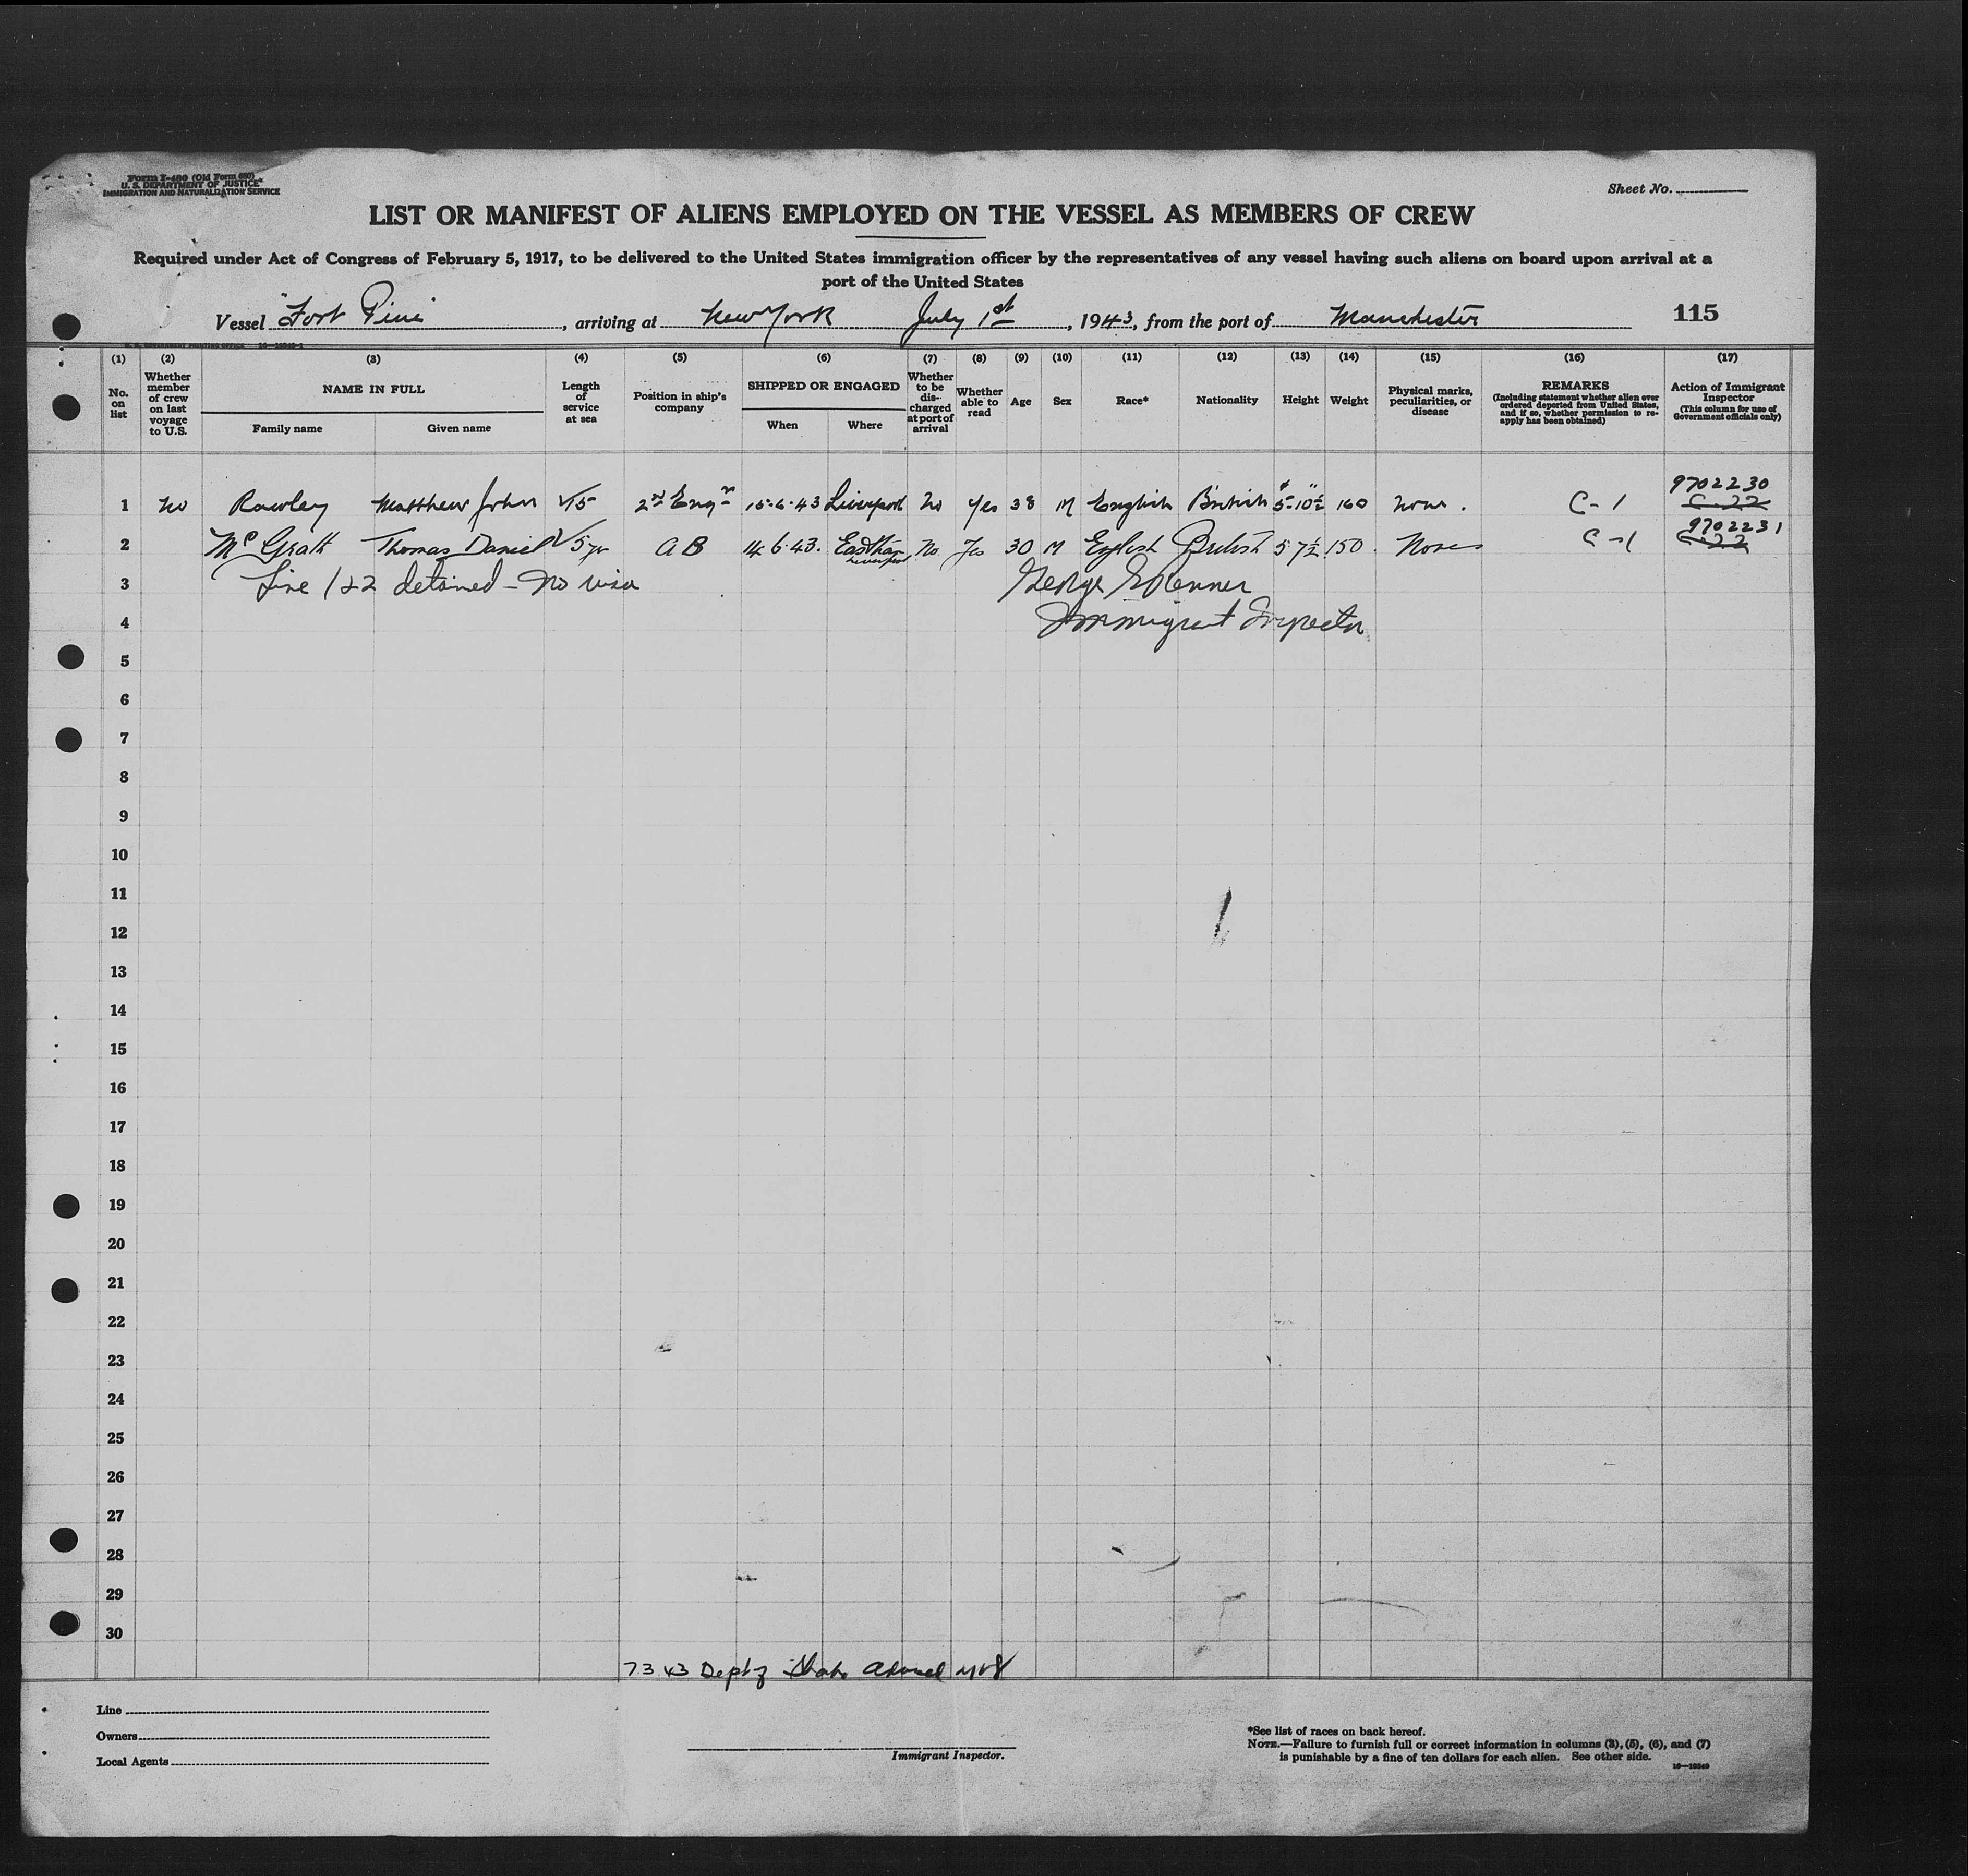 Form I-480 (Old Form 680)
U. S. DEPARTMENT OF JUSTICE
IMMIGRATION AND NATURALIZATION SERVICE
Sheet No.
LIST OR MANIFEST OF ALIENS EMPLOYED ON THE VESSEL AS MEMBERS OF CREW
Required under Act of Congress of February 5, 1917, to be delivered to the United States immigration officer by the representatives of any vessel having such aliens on board upon arrival at a
port of the United States
Vessel Fort , arriving at New York July 1st , 1943, from the port of Manchester 115
(1) (2) (3) (4) (5) (6) (7) (8) (9) (10) (11) (12) (13) (14) (15) (16) (17)
No. on list
Whether member of crew on last voyage to U.S.
NAME IN FULL
Family name Given name
Length of service at sea
Position in ship's company
SHIPPED OR ENGAGED
When Where
Whether to be discharged at port of arrival
Whether able to read
Age
Sex
Race*
Nationality
Height
Weight
Physical marks, peculiarities, or disease
REMARKS
(Including statement whether alien ever ordered deported from United States, and if so, whether permission to reapply has been obtained)
Action of Immigrant Inspector
(This column for use of Government officials only)
9702230
1 No Rowley Matthew John 15 2nd Engr 15.6.43 Liverpool No Yes 38 M English British 5-10½ 160 None. C-1 C-22
9702231
2 McGrath Thomas Daniel 5 yr AB 14.6.43. Eastham Liverpool No Yes 30 M English British 5 7½ 150. None C-1 C-22
3 Line 1&2 detained - No visa George
4 Immigrant Inspector
5
6
7
8
9
10
11
12
13
14
15
16
17
18
19
20
21
22
23
24
25
26
27
28
29
30
7 3 43 Dept of State
Line
Owners
Local Agents
Immigrant Inspector.
*See list of races on back hereof.
NOTE.—Failure to furnish full or correct information in columns (3), (5), (6), and (7)
is punishable by a fine of ten dollars for each alien. See other side.